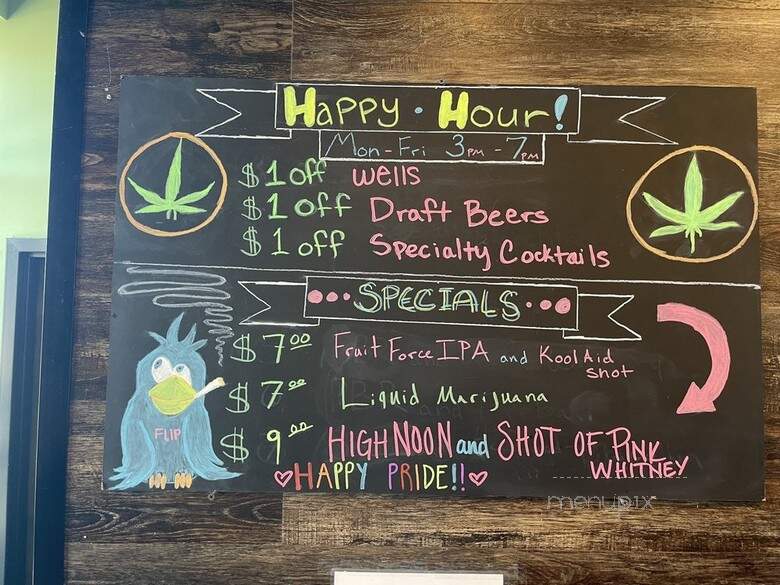 Happy · Hour!
Mon - Fri 3PM - 7PM
$1 off wells
$1 off Draft Beers
$1 off Specialty Cocktails
SPECIALS
$7.00 Fruit Force IPA and Kool Aid shot
$7.00 Liquid Marijuana
$9.00 HIGH NOON and SHOT OF PINK WHITNEY
FLIP
♡HAPPY PRIDE!!♡
menupix